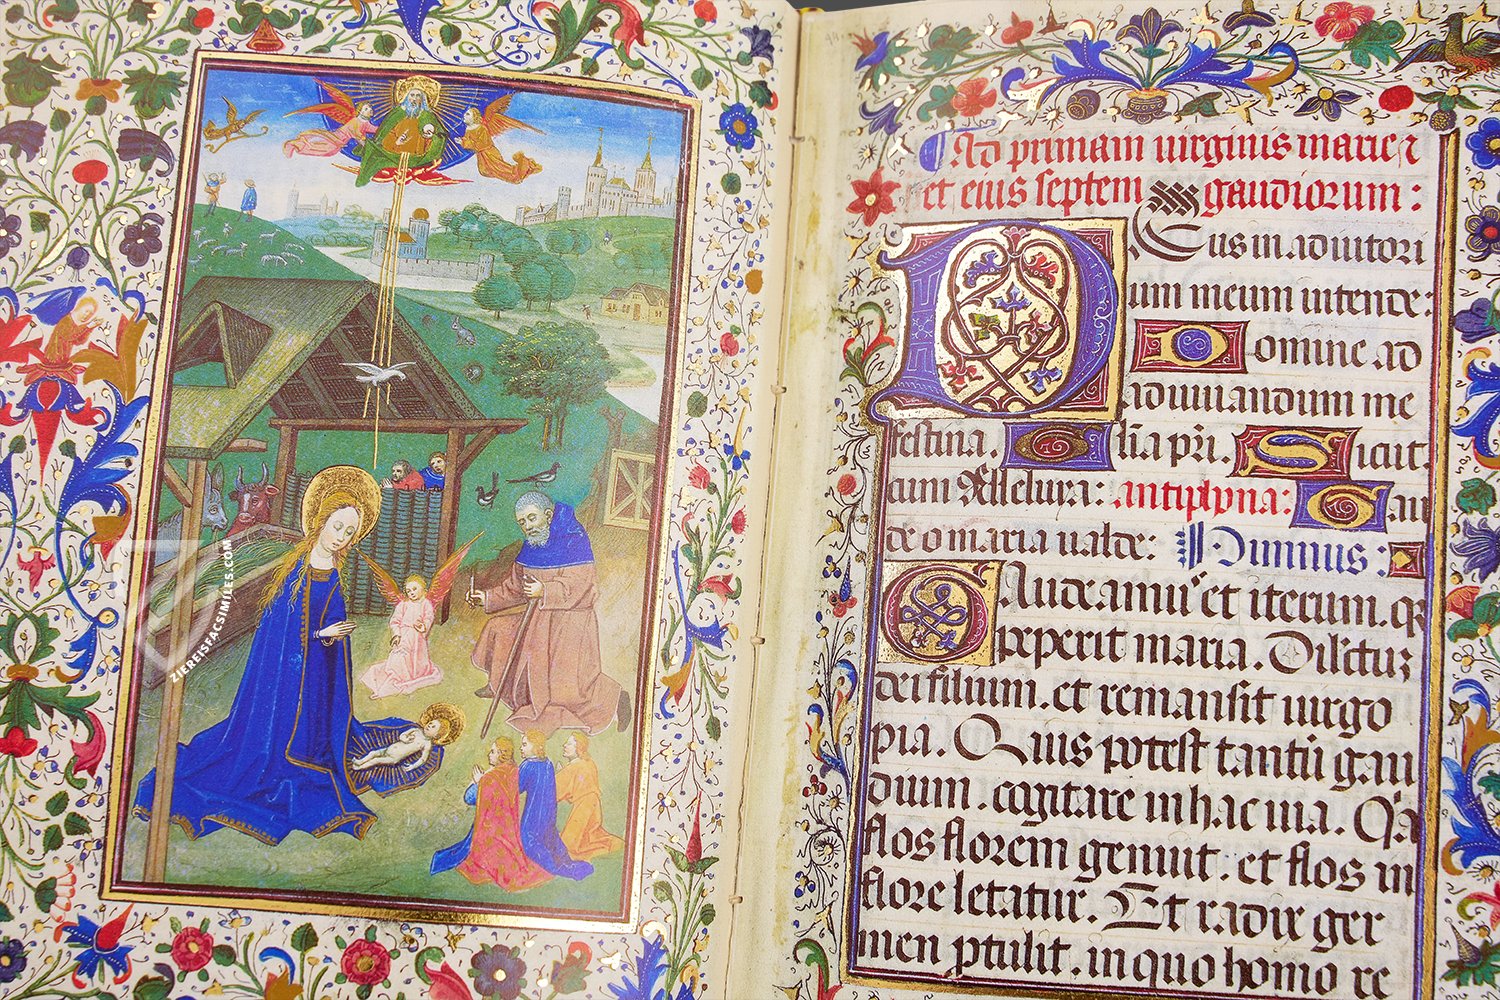 Ad primam virginis marie
et eius septem gaudiorum:
Deus in adiutori
um meum intende:
Domine ad
adiuuandum me
festina. Glia pri. Sicut
cum Allelura: antiphna: Gau
de o maria ualde: Himnus:
Gaudeamus et iterum. q
peperit maria. Dilectus
dei filium. et remansit uirgo
pia. Quis potest tantu gau
dium. cogitare in hac uia. Qa
flos florem genuit. et flos in
flore letatur. Et radix ger
men ptulit. in quo homo re
ZIEREISFACSIMILES.COM